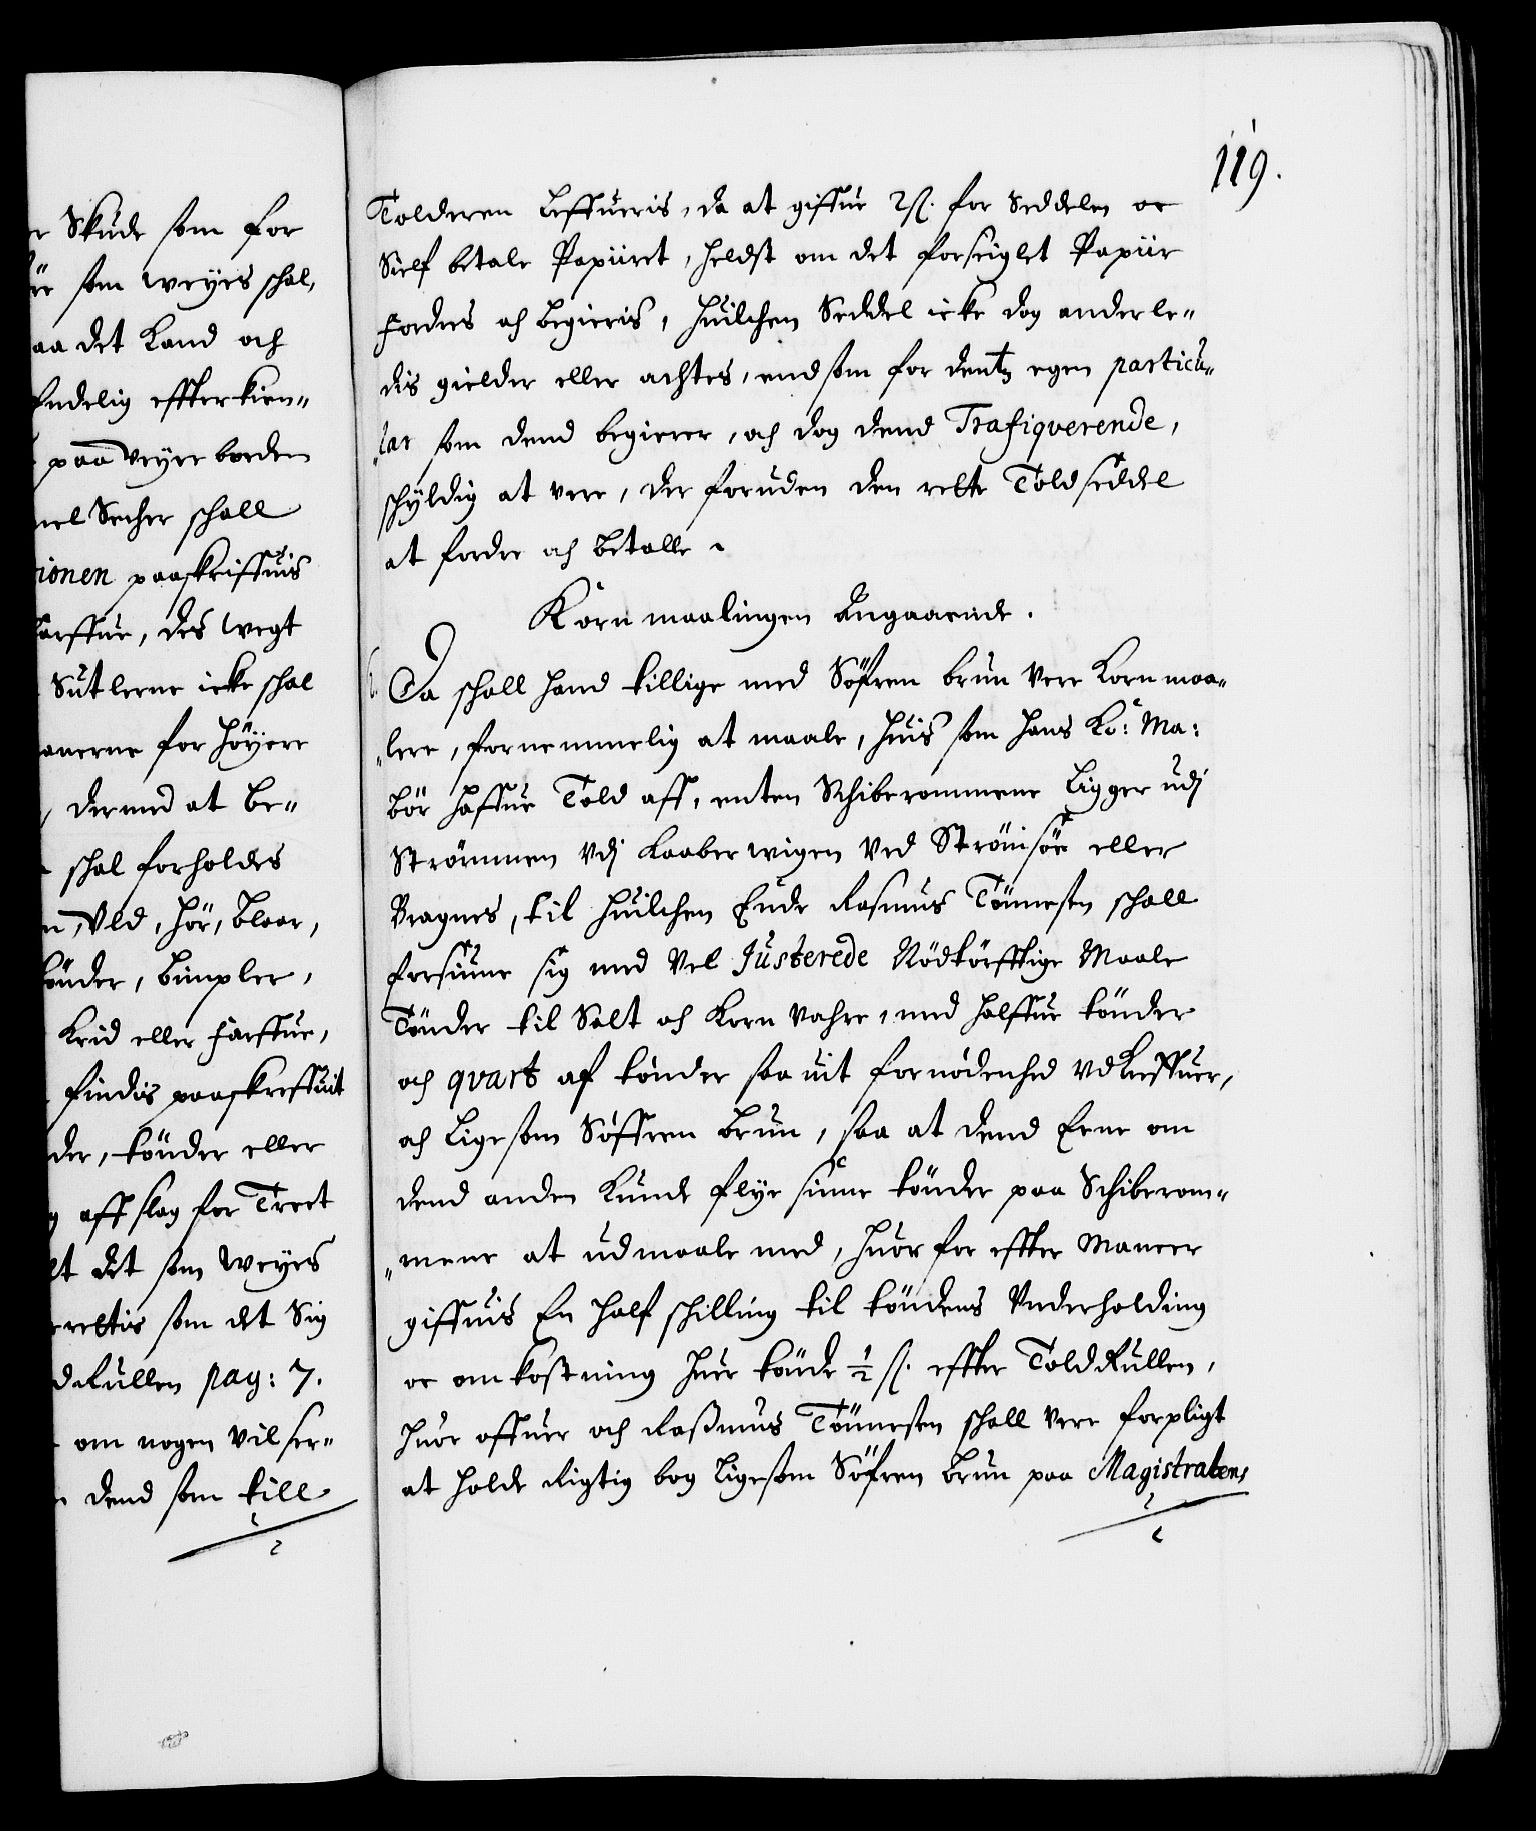 r Skude som for
ür som weyes schal,
aa det Land och
endelig effterkien„
paa Veyer boeden
nel Secher schall
tionen paaskriffuis
arffue, des wegt
Sutlerne icke schal
anerne for höyere
dermed at be„
schal forholdes
n, Vld, hör, blaar,
tönder, bimpler,
Krid eller Farffue,
findis paaskreffuit
der, tönder eller
g affslag for Treet
lt det som weyes
rettis som det Sig
dRullen pag: 7.
om nogen vil ser„
dend som till
119.
Tolderen leffueris, da at giffue 2 ß. for Seddelen oc
Sielf betale Papiiret, heldst om det forseiglet Papiir
fordres och begieris, huilchen Seddel icke dog anderle„
dis gielder eller achtes, end som for dents egen particu„
„lar som dend begierer, och dog dend Trafiqverende,
schyldig at vere, der foruden den rette Told seddel
at fordre och betalle.
Korn maalingen Angaaende.
Da schall hand tillige med Söfren brun Vere Korn maa„
„lere, fornemmelig at maale, huis som hans Ko: Ma:
bör haffue Told aff, enten Schiberommene ligger udj
Strömmen Vdj Kaaberwigen Ved Strömsöe eller
Bragnes, til huilchen Ende Rasmus Tönnesen schall
forsiune sig med Vel Justerede Nödtörfftige Maale
Tönder til Salt och Korn vahre, med halffue tönder
och qvart af tönder saa vit fornödenhed Vdkreffuer,
och Ligesom Söffren Brun, saa at dend Eene om
dend anden Kunde flye sinne tönder paa Schiberom„
„mene at udmaale med, huorfor effter Maneer
giffuis En half schilling til töndens Vnderholding
oc omkostning huer tönde ½ ß. effter ToldRullen,
huor offuer och Rasmus Tönnesen schall vere forpligt
at holde Rigtig bog ligesom Söfren Brun paa Magistratens